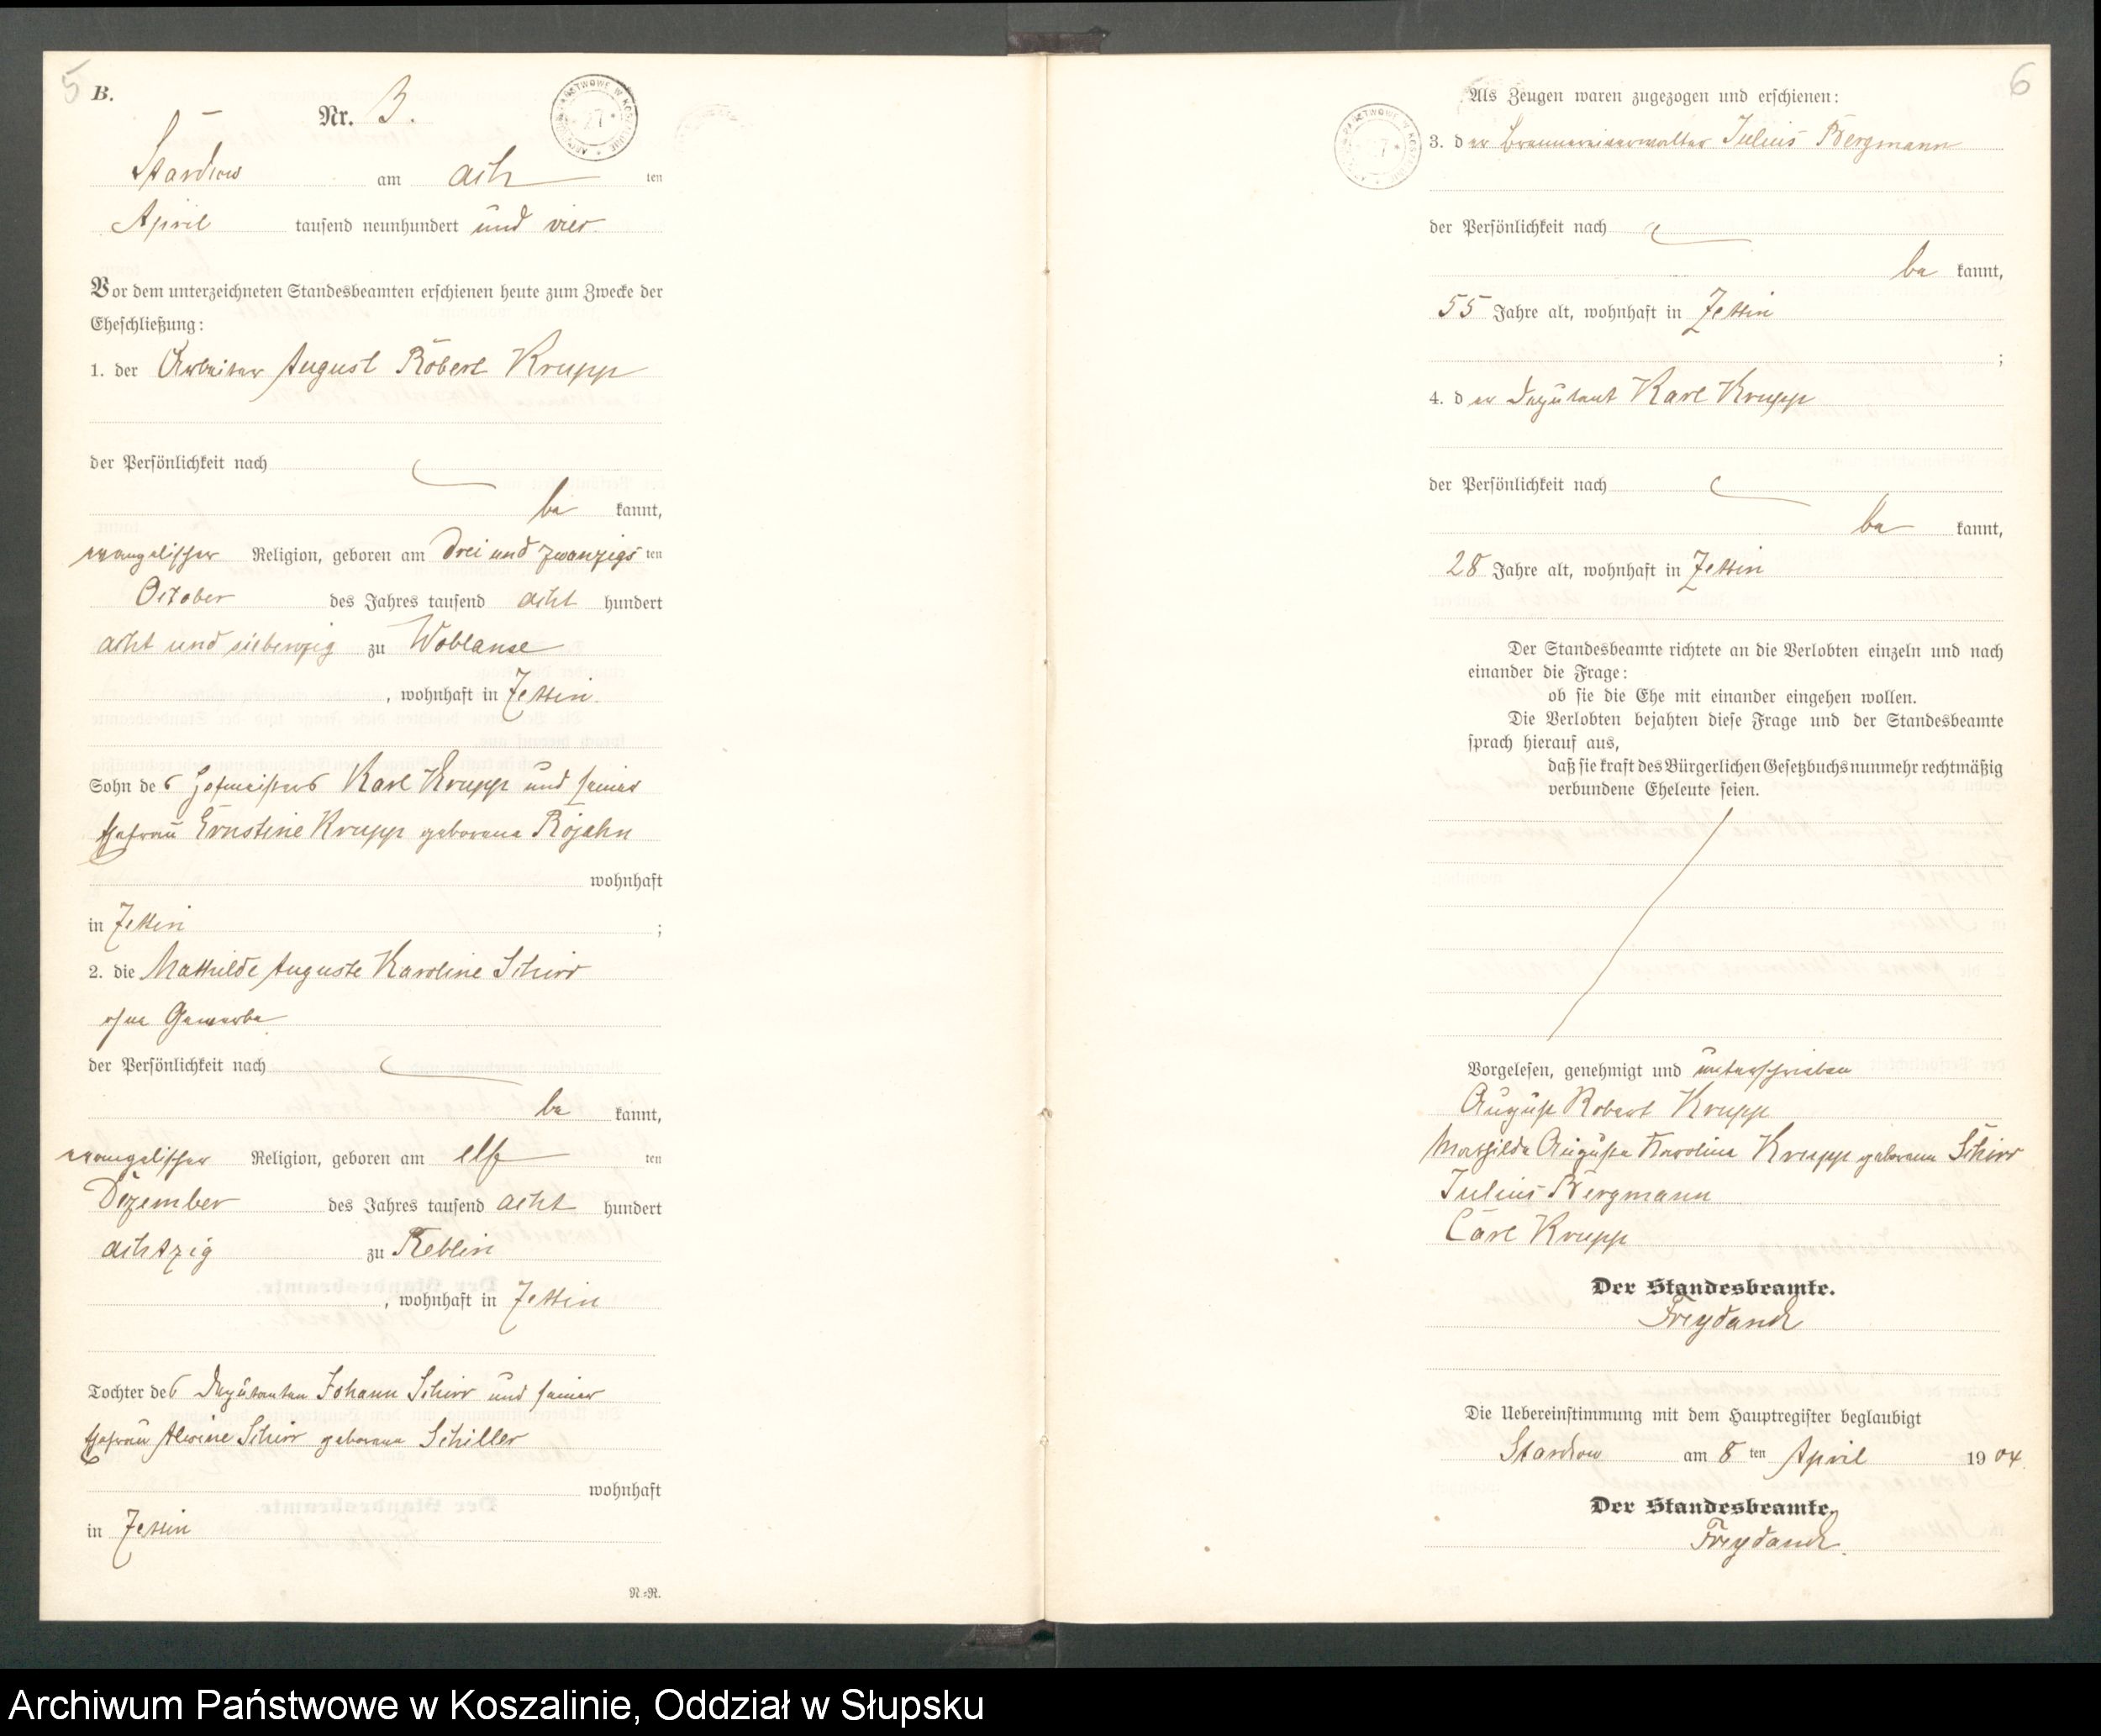 5
B.
Nr. 3.
Stardow am acht ten
April tausend neunhundert und vier.
Vor dem unterzeichneten Standesbeamten erschienen heute zum Zwecke der
Eheschließung:
1. der Arbeiter August Robert Krupp
der Persönlichkeit nach
be kannt,
evangelischer Religion, geboren am drei und zwanzigs ten
October des Jahres tausend acht hundert
acht und siebenzig zu Woblanse
, wohnhaft in Zettin.
Sohn des Hofmeisters Karl Krupp und seiner
Ehefrau Ernstine Krupp geborene Rojahn
wohnhaft
in Zettin ;
2. die Mathilde Auguste Karoline Schirr
ohne Gewerbe
der Persönlichkeit nach
be kannt,
evangelischer Religion, geboren am elf ten
Dezember des Jahres tausend acht hundert
achtzig zu Reblin
, wohnhaft in Zettin
Tochter des Deputanten Johann Schirr und seiner
Ehefrau Alwine Schirr geborene Schiller
wohnhaft
in Zettin
N=R.
6
Als Zeugen waren zugezogen und erschienen:
3. der Brennereiverwalter Julius Bergmann
der Persönlichkeit nach
be kannt,
55 Jahre alt, wohnhaft in Zettin
;
4. der Deputant Karl Krupp
der Persönlichkeit nach
be kannt,
28 Jahre alt, wohnhaft in Zettin
Der Standesbeamte richtete an die Verlobten einzeln und nach
einander die Frage:
ob sie die Ehe mit einander eingehen wollen.
Die Verlobten bejahten diese Frage und der Standesbeamte
sprach hierauf aus,
daß sie kraft des Bürgerlichen Gesetzbuchs nunmehr rechtmäßig
verbundene Eheleute seien.
Vorgelesen, genehmigt und unterschrieben
August Robert Krupp
Mathilde Auguste Karoline Krupp geborene Schirr
Julius Bergmann
Carl Krupp
Der Standesbeamte.
Freydanck
Die Uebereinstimmung mit dem Hauptregister beglaubigt
Stardow am 8 ten April 1904.
Der Standesbeamte.
Freydanck.
Archiwum Państwowe w Koszalinie, Oddział w Słupsku